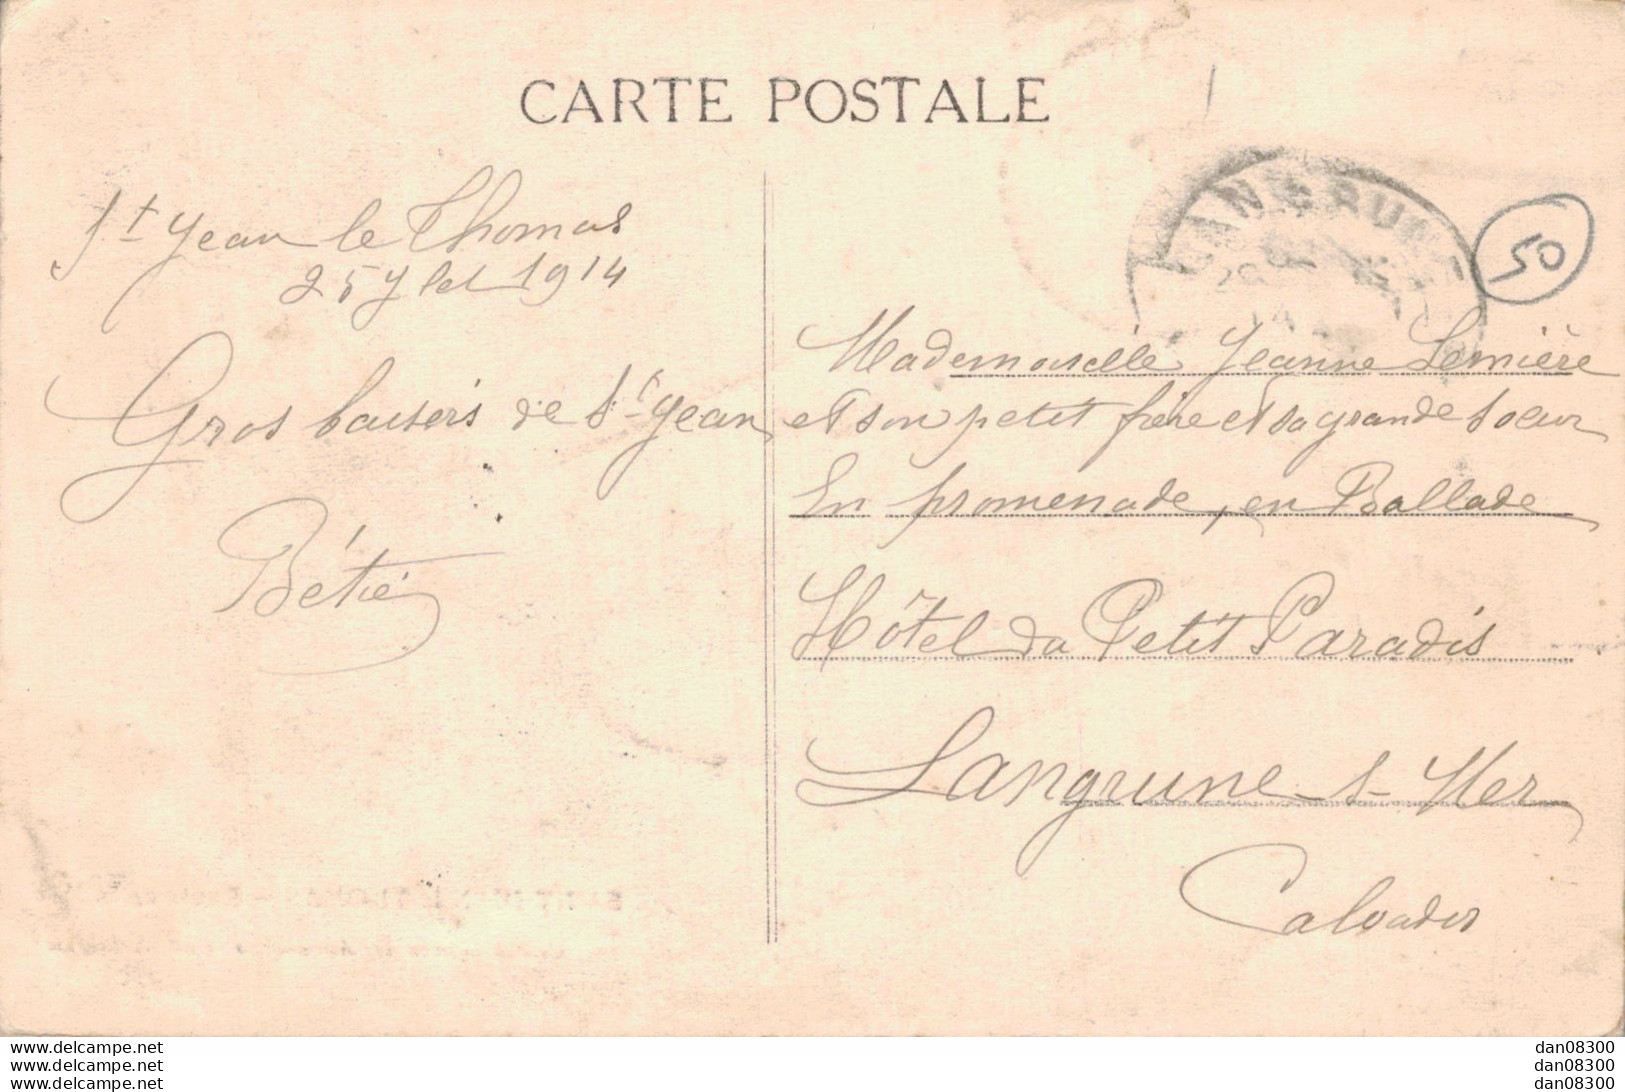 CARTE POSTALE
St Jean le Thomas
25 Jlet 1914
Gros baisers de St Jean
Bétie
LANGRUNE
Mademoiselle Jeanne Lemière
et son petit frère et sa grande soeur
En promenade, en Ballade
Hôtel du Petit Paradis
Langrune s- Mer
Calvados
50
www.delcampe.net
www.delcampe.net
www.delcampe.net
dan08300
dan08300
dan08300